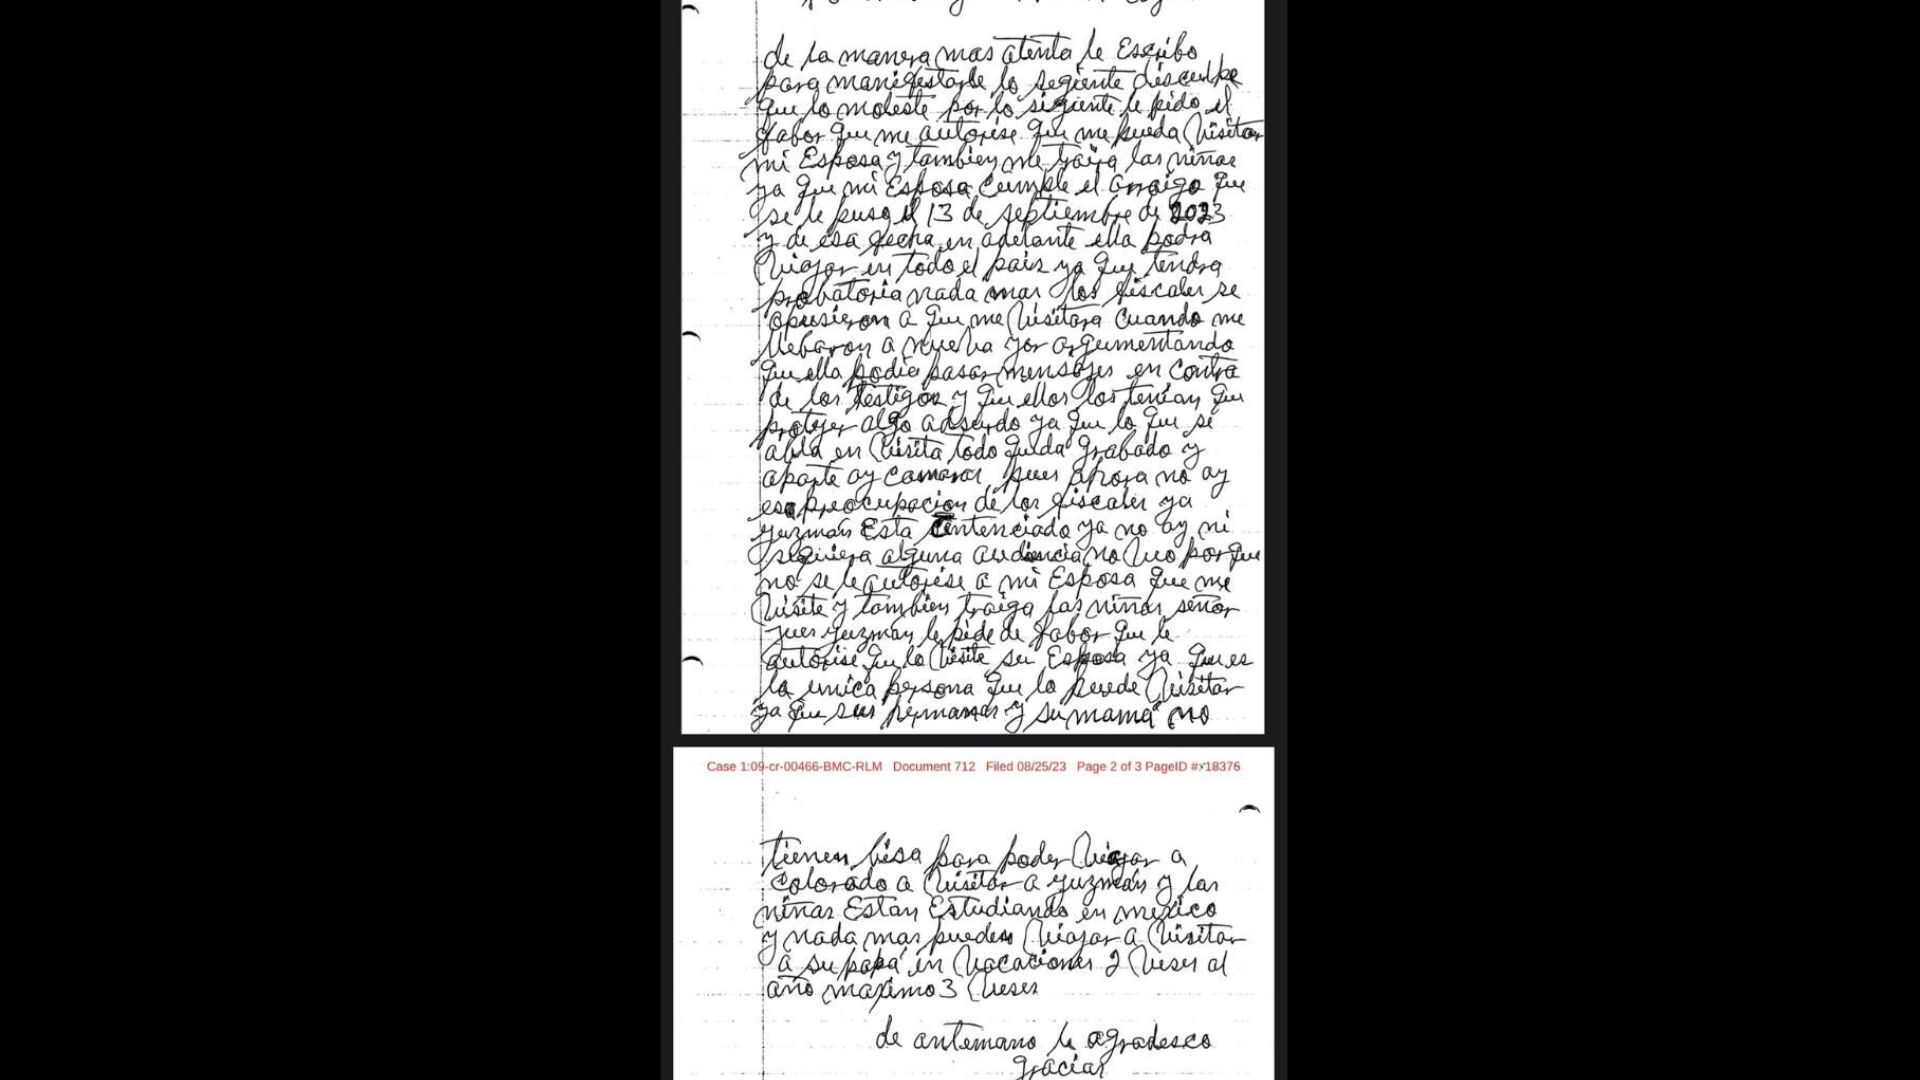 de la manera mas atenta le Escribo
para manifestarle lo segiente disculpe
que lo moleste por lo sigiente le pido el
fabor que me autorise que me pueda Visitar
mi Esposa y tambien me traiga las niñas
ya que mi Esposa cumple el arraigo que
se le puso el 13 de septiembre de 2023
y de esa fecha en adelante ella podra
Viajar en todo el pais ya que tendra
probatoria nada mas los fiscales se
opusieron a que me Visitara cuando me
llebaron a nueva yor argumentando
que ella podia pasar mensajes en contra
de los testigos y que ellos los tenian que
protejer algo adsurdo ya que lo que se
abla en Visita todo queda grabado y
aparte ay camaras pues ahora no ay
esa preocupacion de los fiscales ya
guzmán Esta Centenciado ya no ay ni
siquiera alguna audiencia no Veo porque
no se le autorise a mi Esposa que me
Visite y tambien traiga las niñas señor
jues guzman le pide de fabor que le
autorise que lo Visite su Esposa ya que es
la unica persona que lo puede Visitar
ya que sus hermanas y su mamá no
Case 1:09-cr-00466-BMC-RLM Document 712 Filed 08/25/23 Page 2 of 3 PageID #: 18376
tienen bisa para poder Viajar a
colorado a Visitar a guzmán y las
niñas Estan Estudiando en mexico
y nada mas pueden Viajar a Visitar
a su papá en Vacaciones 2 Veses al
año maximo 3 Veses
de antemano le agradesco
gracias